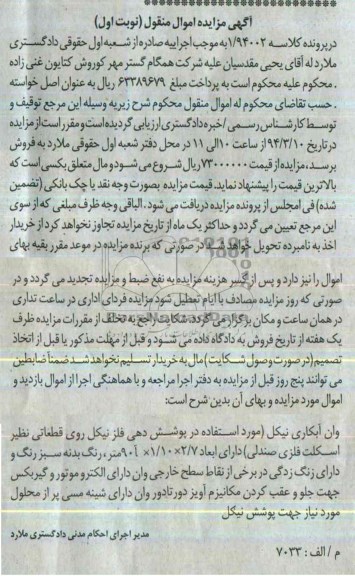 آگهی مزایده اموال منقول (نوبت اول)
درپرونده کلاسه ۱/۹۴۰۰۲ به موجب اجراییه صادره از شعبه اول حقوقی دادگستری
ملارد له آقای یحیی مقدسیان علیه شرکت همگام گستر مهر کوروش کتایون غنی زاده
. محکوم علیه محکوم است به پرداخت مبلغ ۶۳۳۸۹۶۷۹ ریال به عنوان اصل خواسته
. حسب تقاضای محکوم له اموال منقول محکوم شرح زیر به وسیله این مرجع توقیف و
توسط کارشناس رسمی /خبره دادگستری ارزیابی گردیده است و مقرر است از مزایده
در تاریخ ۹۴/۳/۱۰ از ساعت ۱۰ الی ۱۱ در محل دفتر شعبه اول حقوقی ملارد به فروش
برسد، مزایده از قیمت ۷۳۰۰۰۰۰۰ ریال شروع می شود و مال متعلق بکسی است که
بالاترین قیمت را پیشنهاد نماید. قیمت مزایده بصورت وجه نقد یا چک بانکی (تضمین
شده) فی امجلس از برنده مزایده دریافت می شود . الباقی وجه ظرف مبلغی که از سوی
این مرجع تعیین می گردد و حداکثر یک ماه از تاریخ مزایده تجاوز نخواهد کرد از خریدار
اخذ به نامبرده تحویل خواهد شد . در صورتی که برنده مزایده در موعد مقرر بقیه بهای
اموال را نیز دارد و پس از کسر هزینه مزایده به نفع ضبط و مزایده تجدید می گردد و در
صورتی که روز مزایده مصادف با ایام تعطیل شود مزایده فردای اداری در ساعت تداری
در همان ساعت و مکان برگزار می گردد. شکایت راجع به تخلف از مقررات مزایده ظرف
یک هفته از تاریخ فروش به دادگاه داده می شود و قبل از مهلت مذکور یا قبل از اتخاذ
تصمیم (در صورت وصول شکایت) مال به خریدار تسلیم نخواهد شد ضمنا ضابطین
می توانند پنج روز قبل از مزایده به دفتر اجرا مراجعه و با هماهنگی اجرا از اموال بازدید و
اموال مورد مزایده و بهای آن بدین شرح است:
وان آبکاری نیکل (مورد استفاده در پوشش دهی فلز نیکل روی قطعاتی نظیر
اسکلت فلزی صندلی) دارای ابعاد ۲/۷×۱/۱۰× ۹۰متر، رنگ بدنه سبز رنگ و
دارای زنگ زدگی در برخی از نقاط سطح خارجی وان دارای الکترو موتور و گیربکس
جهت جلو و عقب کردن مکانیزم آویز دورتادور وان دارای شینه مسی پر از محلول
مورد نیاز جهت پوشش نیکل
مدیر اجرای احکام مدنی دادگستری ملارد
م / الف : ۷۰۳۳